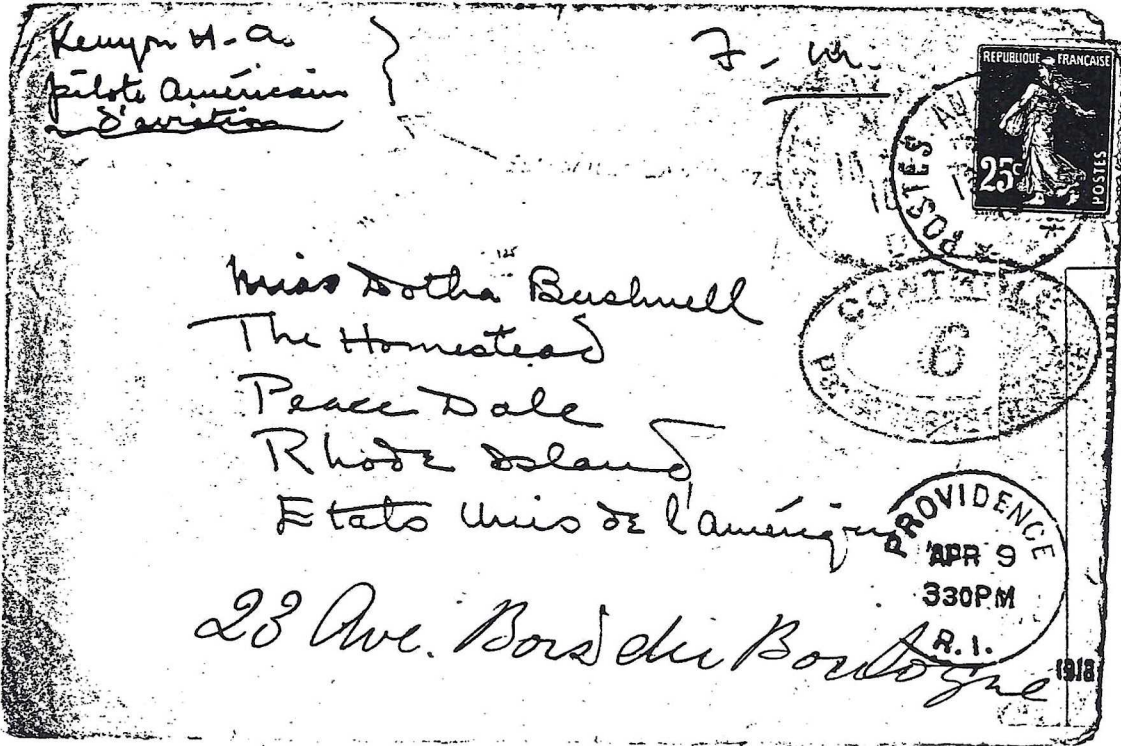 Kenyon H. A.
pilote Américain
d'aviation
F. M.
REPUBLIQUE FRANÇAISE
25c
POSTES
POSTES AU
CONTROLE
6
Miss Dotha Bushnell
The Homestead
Peace Dale
Rhode Island
Etats Unis de l'Amérique
PROVIDENCE
APR 9
330PM
R.I.
1918
23 Ave. Bois du Boulogne